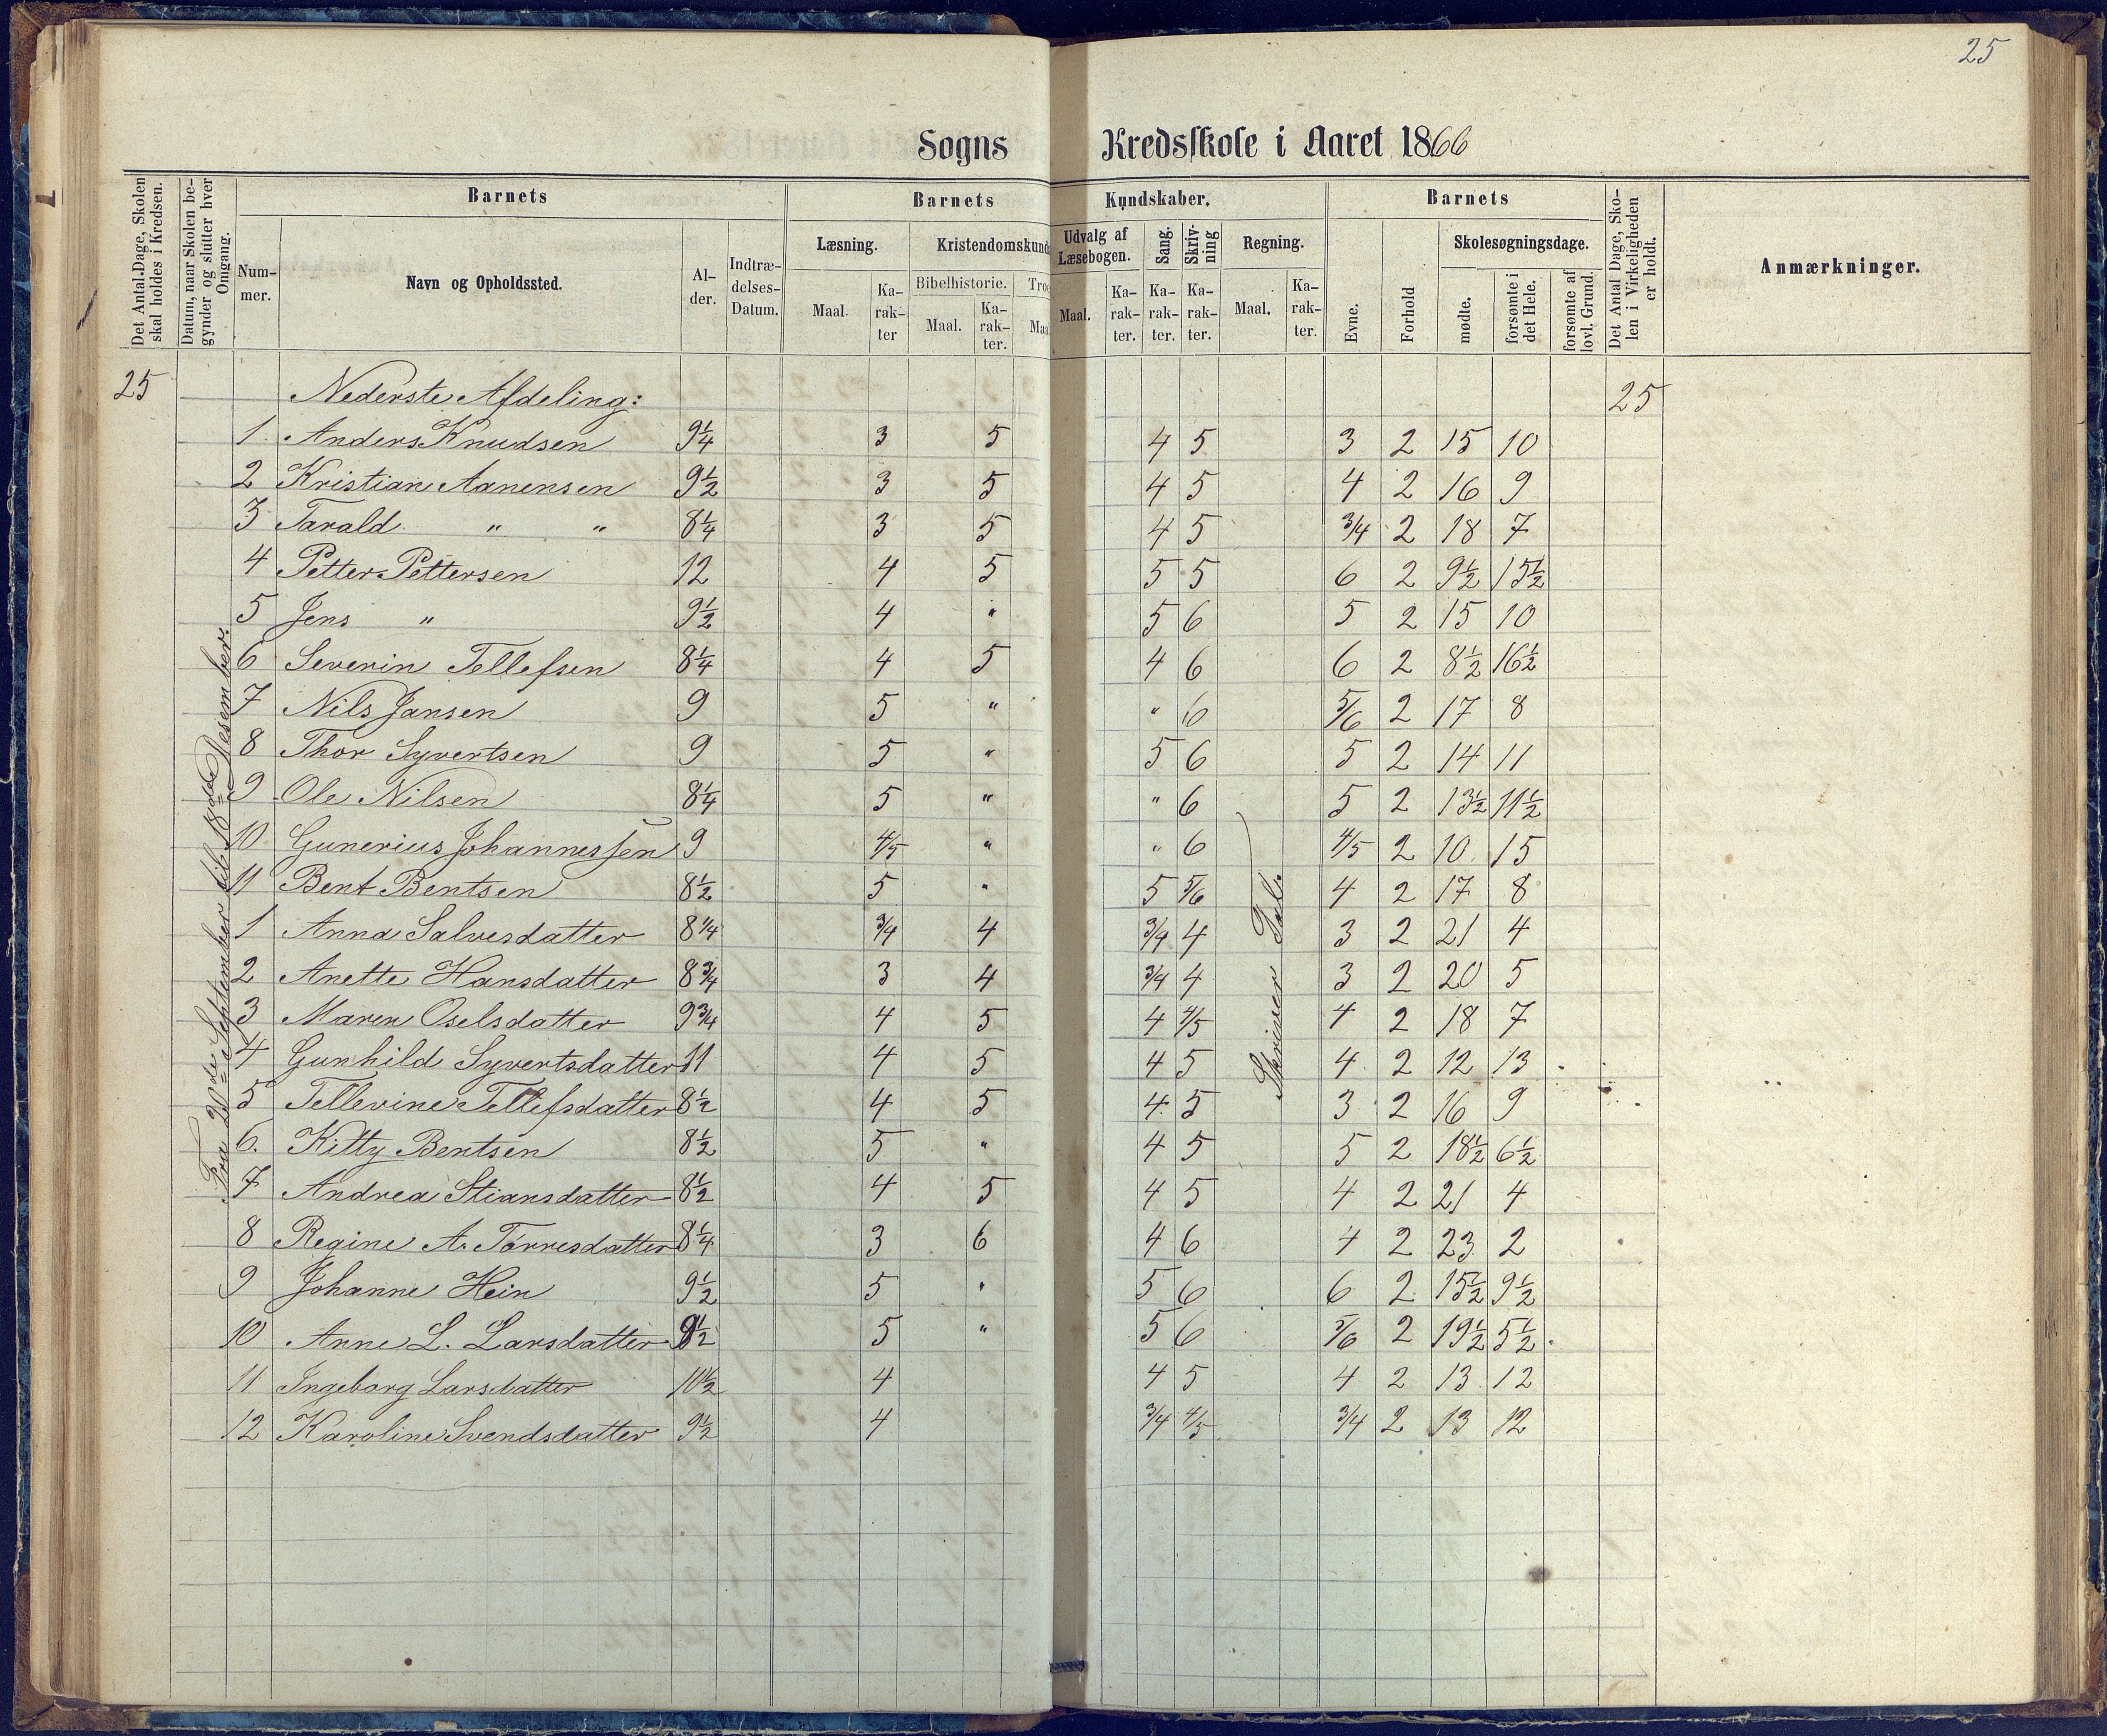 25
Sogns Kredsskole i Aaret 1866
Det Antal Dage, Skolen skal holdes i Kredsen.
Datum, naar Skolen begynder og slutter hver Omgang.
Barnets
Nummer.
Navn og Opholdssted.
Alder.
Indtrædelses-Datum.
Barnets Kundskaber.
Læsning.
Maal.
Karakter
Kristendomskund
Bibelhistorie.
Maal.
Karakter.
Troe
Maa
Udvalg af Læsebogen.
Maal.
Karakter.
Sang.
Karakter.
Skrivning
Karakter.
Regning.
Maal.
Karakter.
Barnets
Evne.
Forhold
Skolesøgningsdage.
mødte.
forsømte i det Hele.
forsømte af lovl. Grund.
Det Antal Dage, Skolen i Virkeligheden er holdt.
Anmærkninger.
25 Nederste Afdeling: 25
1 Anders Knudsen 9¼ 3 5 4 5 3 2 15 10
2 Kristian Aanensen 9½ 3 5 4 5 4 2 16 9
3 Tarald " " 8¼ 3 5 4 5 3/4 2 18 7
4 Petter Pettersen 12 4 5 5 5 6 2 9½ 15½
5 Jens " 9½ 4 " 5 6 5 2 15 10
6 Severin Tellefsen 8¼ 4 5 4 6 6 2 8½ 16½
7 Nils Jansen 9 5 " " 6 5/6 2 17 8
8 Thor Syvertsen 9 5 " 5 6 5 2 14 11
9 Ole Nilsen 8¼ 5 " " 6 5 2 13½ 11½
10 Gunerius Johannessen 9 4/5 " " 6 4/5 2 10 15
11 Bent Bentsen 8½ 5 " 5 5/6 4 2 17 8
1 Anna Salvesdatter 8¼ 3/4 4 3/4 4 3 2 21 4
2 Anette Hansdatter 8¾ 3 4 3/4 4 3 2 20 5
3 Maren Oselsdatter 9¾ 4 5 4 4/5 4 2 18 7
4 Gunhild Syvertsdatter 11 4 5 4 5 4 2 12 13
5 Tellevine Tellefsdatter 8½ 4 5 4 5 3 2 16 9
6. Kitty Bentsen 8½ 5 " 4 5 5 2 18½ 6½
7 Andrea Stiansdatter 8½ 4 5 4 5 4 2 21 4
8 Regine A. Tørresdatter 8¼ 3 6 4 6 4 2 23 2
9 Johanne Hein 9½ 5 " 5 6 6 2 15½ 9½
10 Anne L. Larsdatter 8½ 5 " 5 6 5/6 2 19½ 5½
11 Ingeborg Larsdatter 10½ 4 4 5 4 2 13 12
12 Karoline Svendsdatter 9½ 4 3/4 4/5 3/4 2 13 12
Fra 20de September til 18de Desember.
Skriver Tal.